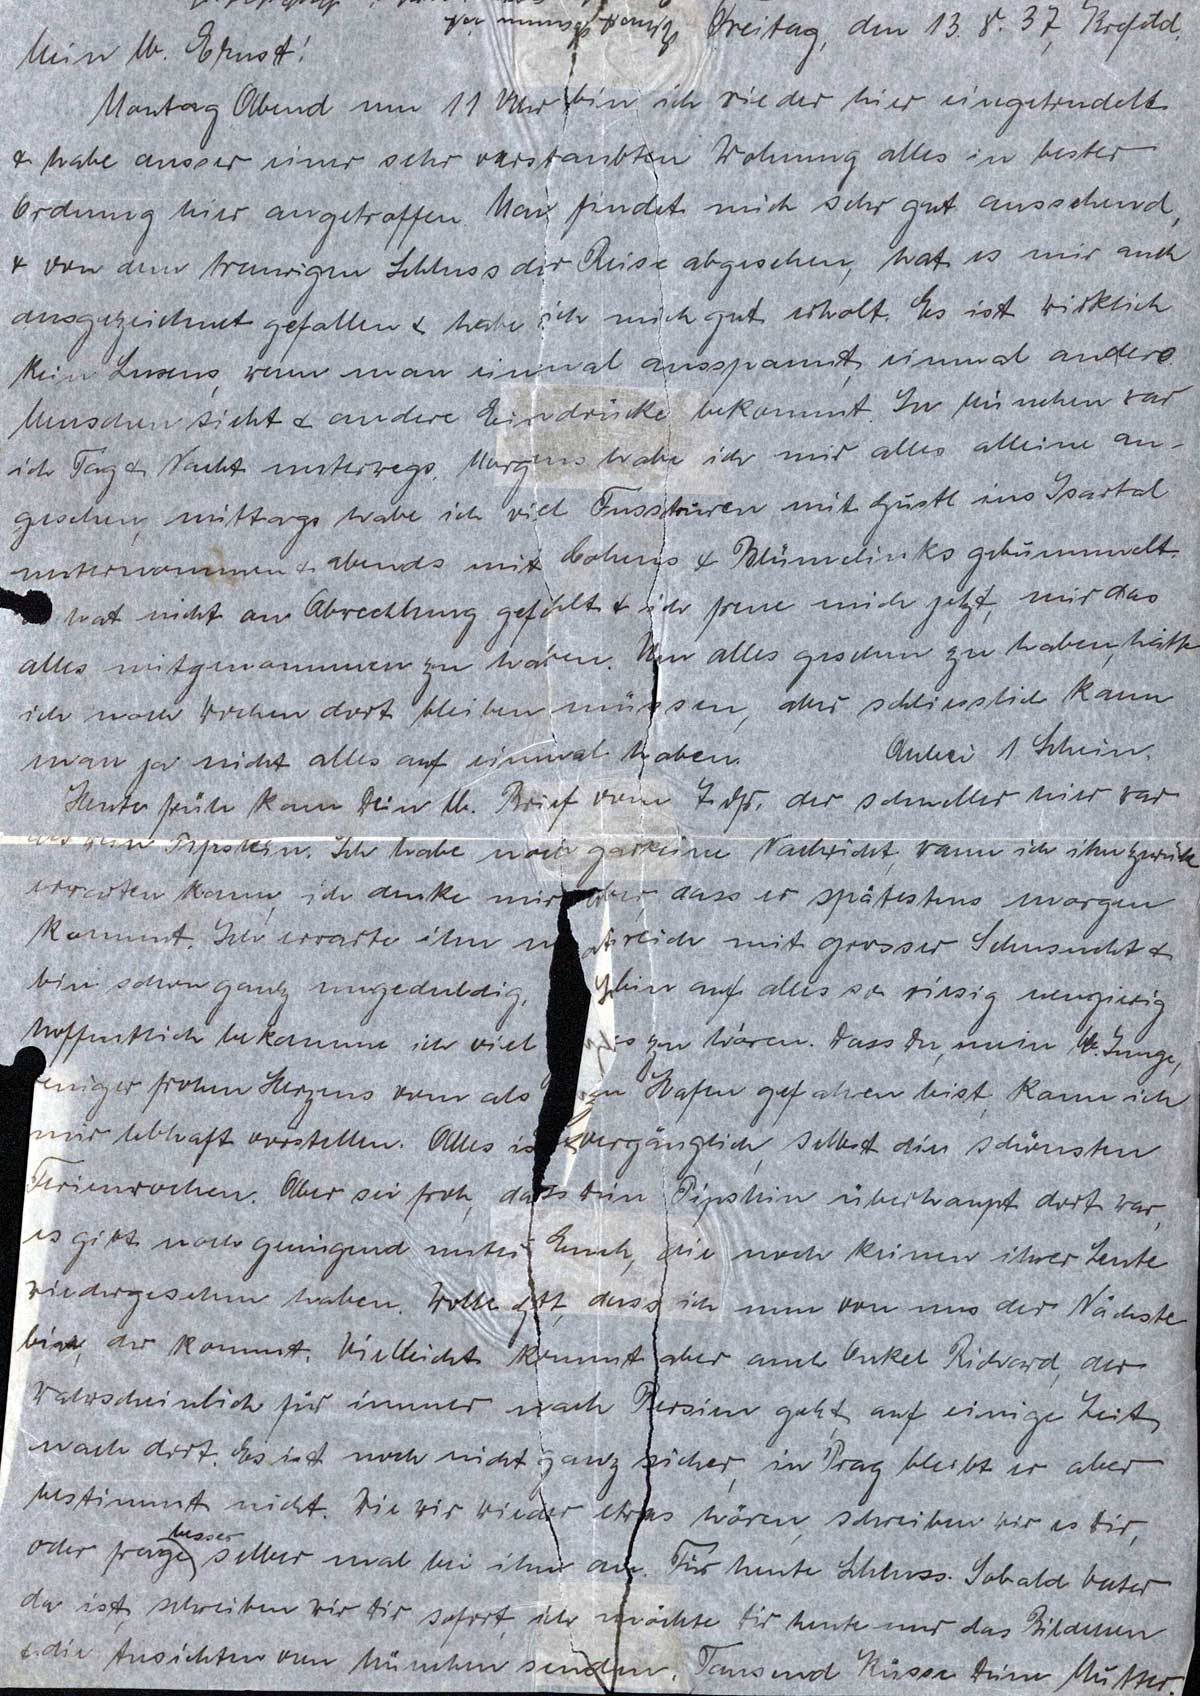 Freitag, den 13. 8. 37, Krefeld.
Mein lb. Ernst!
Montag Abend um 11 Uhr bin ich wieder hier eingetrudelt
& habe ausser einer sehr verstaubten Wohnung alles in bester
Ordnung hier angetroffen. Man findet mich sehr gut aussehend,
& von dem traurigen Schluss der Reise abgesehen, hat es mir auch
ausgezeichnet gefallen & habe ich mich gut erholt. Es ist wirklich
kein Luxus, wenn man einmal ausspannt, einmal andere
Menschen sieht & andere Eindrücke bekommt. In München war
ich Tag & Nacht unterwegs. Morgens habe ich mir alles alleine an-
gesehen, mittags habe ich viel Fusstouren mit Gustl ins Isartal
unternommen & abends mit Cohens & Blümelinks gebummelt.
hat nicht an Abwechlung gefehlt & ich freue mich jetzt, mir das
alles mitgenommen zu haben. Um alles gesehen zu haben, hätte
ich noch Wochen dort bleiben müssen, aber schliesslich kann
man ja nicht alles auf einmal haben. Anbei 1 Schein.
Heute früh kam Dein lb. Brief vom 7. ds., der schneller hier war
Pipslein. Ich habe noch garkeine Nachricht, wann ich ihn zurück
erwarten kann, ich denke mir aber, dass er spätestens morgen
kommt. Ich erwarte ihn natürlich mit grosser Sehnsucht &
bin schon ganz ungeduldig, bin auf alles so riesig neugierig
hoffentlich bekomme ich viel zu hören. Dass Du, mein lb. Junge,
weniger frohen Herzens vom als Hafen gefahren bist, kann ich
mir lebhaft vorstellen. Alles ist vergänglich, selbst die schönsten
Ferienwochen. Aber sei froh, dass Dein Pipslein überhaupt dort war,
es gibt noch genügend unter Euch, die noch keinen ihrer Leute
wiedergesehen haben. Wolle Gott, dass ich nun von uns der Nächste
bin, der kommt. Vielleicht kommt aber auch Onkel Richard, der
wahrscheinlich für immer nach Persien geht, auf einige Zeit
nach dort. Es ist noch nicht ganz sicher, in Prag bleibt er aber
bestimmt nicht. Wie wir wieder etwas hören, schreiben wir es Dir,
oder frage besser selber mal bei ihm an. Für heute Schluss. Sobald Vater
da ist, schreiben wir Dir sofort, ich möchte Dir heute nur das Bildchen
& die Ansichten von München senden. Tausend Küsse Deine Mutter.